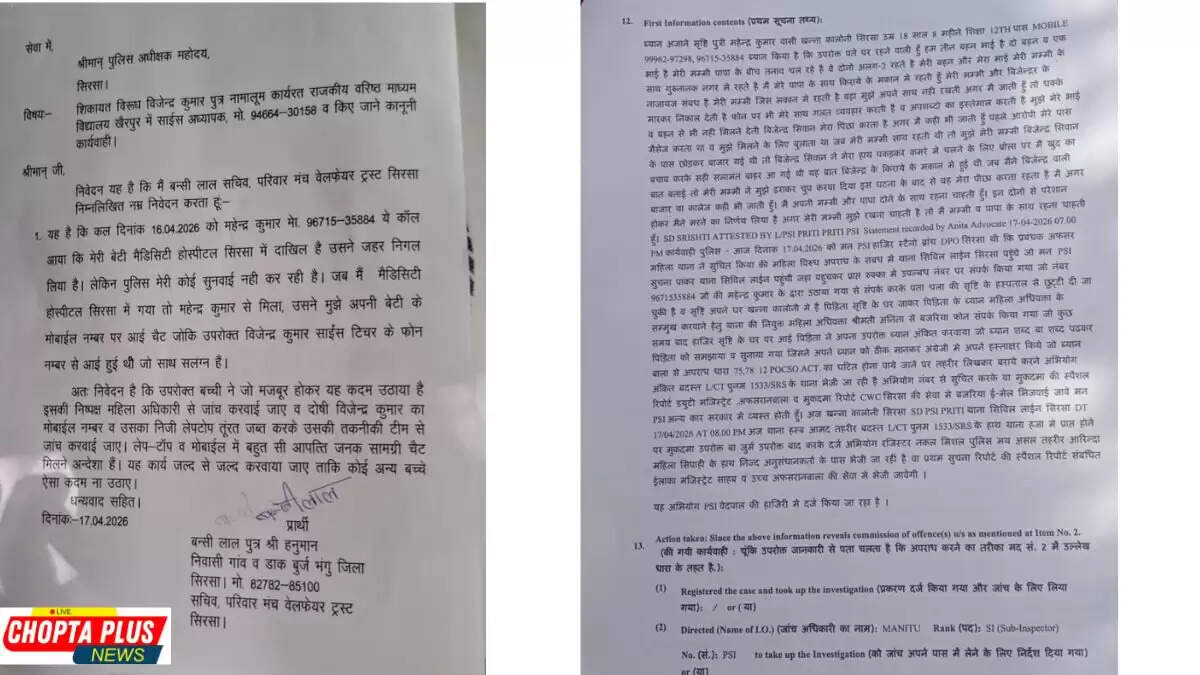 सेवा में,
श्रीमान् पुलिस अधीक्षक महोदय,
सिरसा।
विषयः- शिकायत विरूध विजेन्द्र कुमार पुत्र नामालूम कार्यरत राजकीय वरिष्ठ माध्यम
विद्यालय खैरपुर में साईस अध्यापक, मो. 94664-30158 व किए जाने कानूनी
कार्यवाही।
श्रीमान् जी,
निवेदन यह है कि मैं बन्सी लाल सचिव, परिवार मंच वेलफेयर ट्रस्ट सिरसा
निम्नलिखित नम्र निवेदन करता हूः-
1. यह है कि कल दिनांक 16.04.2026 को महेन्द्र कुमार मेा. 96715-35884 ये कॉल
आया कि मेरी बेटी मैडिसिटी होस्पीटल सिरसा में दाखिल है उसने जहर निगल
लिया है। लेकिन पुलिस मेरी कोई सुनवाई नही कर रही है। जब मैं मैडिसिटी
होस्पीटल सिरसा में गया तो महेन्द्र कुमार से मिला, उसने मुझे अपनी बेटी के
मोबाईल नम्बर पर आई चैट जोंकि उपरोक्त विजेन्द्र कुमार साईंस टिचर के फोन
नम्बर से आई हुई थी जो साथ सलग्न हैं।
अतः निवेदन है कि उपरोक्त बच्ची ने जो मजबूर होकर यह कदम उठाया है
इसकी निष्पक्ष महिला अधिकारी से जांच करवाई जाए व दोषी विजेन्द्र कुमार का
मोबाईल नम्बर व उसका निजी लेपटोप तूंरत जब्त करके उसकी तकनीकी टिम से
जांच करवाई जाए। लेप-टॉप व मोबाईल में बहुत सी आपत्ति जनक सामग्री चैट
मिलने अन्देशा हैं। यह कार्य जल्द से जल्द करवाया जाए ताकि कोई अन्य बच्चे
ऐसा कदम ना उठाए।
धन्यवाद सहित।
दिनांकः-17.04.2026
बन्सीलाल
प्रार्थी
बन्सी लाल पुत्र श्री हनुमान
निवासी गांव व डाक बुर्ज भंगु जिला
सिरसा। मो. 82782-85100
सचिव, परिवार मंच वेलफेयर ट्रस्ट
सिरसा।
LIVE
CHOPTA PLUS
NEWS
12. First Information contents (प्रथम सूचना तथ्य):
ब्यान अजाने सृष्टि पुत्री महेन्द्र कुमार वासी खन्ना कालोनी सिरसा उम्र 18 साल 8 महीने शिक्षा 12TH पास MOBILE
99962-97298, 96715-35884 ब्यान किया है कि उपरोक्त पते पर रहने वाली हूँ हम तीन बहन भाई है दो बहन व एक
भाई है मेरी मम्मी पापा के बीच तनाव चल रहे है वे दोनो अलग-2 रहते है मेरी बहन और मेरा भाई मेरी मम्मी के
साथ गुरूनानक नगर में रहते है मै मेरे पापा के साथ किराये के मकान में रहती हूँ मेरी मम्मी और बिजेन्द्रर के
नाजायज संबध है मेरी मम्मी जिस मकान मे रहती है वहा मुझे अपने साथ नही रखती अगर मै जाती हूँ तो धक्के
मारकर निकाल देती है फोन पर भी मेरे साथ गलत व्यवहार करती है व अपशब्दो का इस्तेमाल करती है मुझे मेरे भाई
व बहन से भी नही मिलने देती बिजेन्द्र सिवान मेरा पिछा करता है अगर मै कही भी जाती हूँ पहले आरोपी मेरे पास
मैसेज करता था व मुझे मिलने के लिए बुलाता था जब मेरी मम्मी साथ रहती थी तो मुझे मेरी मम्मी बिजेन्द्र सिवान
के पास छोड़कर बाजार गई थी तो बिजेन्द्र सिवान ने मेरा हाथ पकड़कर कमरे मे चलने के लिए बोला पर मै खुद का
बचाव करके सही सलामत बाहर आ गई थी यह बात बिजेन्द्र के किराये के मकान मे हुई थी जब मैने बिजेन्द्र वाली
बात बताई तो मेरी मम्मी ने मुझे डराकर चुप करवा दिया इस घटना के बाद से वह मेरा पीछा करता रहता है मै अगर
बाजार या कालेज कही भी जाती हूँ। मै अपनी मम्मी और पापा दोने के साथ रहना चाहती हूँ। इन दोनो से परेशान
होकर मैने मरने का निर्णय लिया है अगर मेरी मम्मी मुझे रखना चाहती है तो मै मम्मी व पापा के साथ रहना चाहती
हूँ। SD SRISHTI ATTESTED BY L/PSI PRITI PSI Statement recorded by Anita Advocate 17-04-2026 07.00
PM कार्यवाही पुलिस - आज दिनाक 17.04.2026 को मन PSI हाजिर स्टैनो ब्रांच DPO सिरसा थी कि प्रबंधक अफसर
महिला थाना ने सुचित किया की महिला विरुध अपराध के संबध मे थाना सिविल लाईन सिरसा पहुँचे जो मन PSI
सुचना पाकर थाना सिविल लाईन पहुंची जहा पहुचकर प्राप्त रुक्का मे उपल्बध नंबर पर संपर्क किया गया जो नंबर
9671535884 जो की महेन्द्र कुमार के द्वारा उठाया गया से संपर्क करके पता चला की सृष्टि के हस्पताल से छुट्टी दी जा
चुकी है व सृष्टि अपने घर खन्ना कालोनी मे है पिड़िता सृष्टि के घर जाकर पिड़िता के ब्यान महिला अधिवक्ता के
सम्मुख करवाने हेतु थाना की नियुक्त महिला अधिवक्ता श्रीमती अनिता से बजरिया फोन संपर्क किया गया जो कुछ
समय बाद हाजिर सृष्टि के घर पर आई पिड़िता ने अपना उपरोक्त ब्यान अंकित करवाया जो ब्यान शब्द बा शब्द पढकर
पिड़िता को समझाया व सुनाया गया जिसने अपने ब्यान को ठीक मानकर अंग्रेजी मे अपने हस्ताक्षर किये जो ब्यान
बाला से अपराध धारा 75,78 12 POCSO ACT. का घटित होना पाये जाने पर तहरीर लिखकर बराये करने अभियोग
अंकित बदस्त L/CT पुनम 1533/SRS के थाना भेजी जा रही है अभियोग नंबर से सुचित करके या मुकदमा की स्पैशल
रिपोर्ट डयूटी मजिस्ट्रेट ,अफसरानबाला व मुवादमा रिपोर्ट CWC सिरसा की सेवा मे बजरिया ई-मेल भिजवाई जावे मन
PSI अन्य कार सरकार मे व्यस्त होती हूँ। अज खन्ना कालोनी सिरसा SD PSI PRITI थाना सिविल लाईन सिरसा DT
17/04/2026 AT 08.00 PM अज थाना हस्ब आमद तहरीर बदस्त L/CT पुनम 1533/SRS के हाथ थाना हजा मे प्राप्त होने
पर मुकदमा उपरोक्त बा जुर्म उपरोक्त बाद करके दर्ज अभियोग रजिस्टर नकल मिशल पुलिस मय असल तहरीर आरिन्दा
महिला सिपाही के हाथ निज्द अनुसंधानकर्ता के पास भेजी जा रही है वा प्रथम सुचना रिपोर्ट की स्पैशल रिपोर्ट संबधित
ईलाका मजिस्ट्रेट साहब व उच्च अफसरानबाला की सेवा मे भेजी जावेगी ।
यह अभियोग PSI वेदपाल की हाजिरी मे दर्ज किया जा रहा है ।
13. Action taken: Since the above information reveals commission of offence(s) u/s as mentioned at Item No. 2.
(की गयी कार्यवाही : चूंकि उपरोक्त जानकारी से पता चलता है कि अपराध करने का तरीका मद सं. 2 में उल्लेख
धारा के तहत है.):
(1) Registered the case and took up the investigation (प्रकरण दर्ज किया गया और जांच के लिए लिया
गया): / or (या)
(2) Directed (Name of I.O.) (जांच अधिकारी का नाम): MANITU Rank (पद): SI (Sub-Inspector)
No. (सं.): PSI to take up the Investigation (को जांच अपने पास में लेने के लिए निर्देश दिया गया)
or (या)